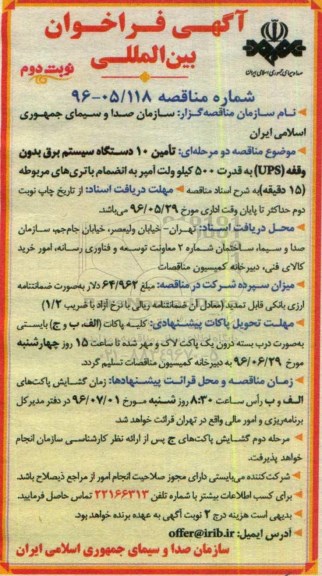 آگهی فراخوان
بین‌المللی
صدا و سیمای جمهوری اسلامی ایران
نوبت دوم
شماره مناقصه ۹۶-۰۵/۱۱۸
نام سازمان مناقصه‌گزار: سازمان صدا و سیمای جمهوری
اسلامی ایران
موضوع مناقصه دو مرحله‌ای: تأمین ۱۰ دستگاه سیستم برق بدون
وقفه (UPS) به قدرت ۵۰۰ کیلو ولت آمپر به انضمام باتری‌های مربوطه
(۱۵ دقیقه) به شرح اسناد مناقصه مهلت دریافت اسناد: از تاریخ چاپ نوبت
دوم حداکثر تا پایان وقت اداری مورخ ۹۶/۰۵/۲۹ می‌باشد.
محل دریافت اسناد: تهران- خیابان ولیعصر، خیابان جام‌جم، سازمان
صدا و سیما، ساختمان شماره ۲ معاونت توسعه و فناوری رسانه، امور خرید
کالای فنی، دبیرخانه کمیسیون مناقصات
میزان سپرده شرکت در مناقصه: مبلغ ۶۴/۹۶۲ دلار به‌صورت ضمانتنامه
ارزی بانکی قابل تمدید (معادل آن ضمانتنامه ریالی با نرخ آزاد با ضریب ۱/۲)
مهلت تحویل پاکات پیشنهادی: کلیه پاکات (الف، ب و ج) بایستی
به‌صورت درب بسته درون یک پاکت لاک و مهر شده تا ساعت ۱۵ روز چهارشنبه
مورخ ۹۶/۰۶/۲۹ به دبیرخانه کمیسیون مناقصات تسلیم گردد.
زمان مناقصه و محل قرائت پیشنهادها: زمان گشایش پاکت‌های
الف و ب رأس ساعت ۸:۳۰ روز شنبه مورخ ۹۶/۰۷/۰۱ در دفتر مدیرکل
برنامه‌ریزی و امور مالی واقع در تهران قرائت خواهد شد.
مرحله دوم گشایش پاکت‌های ج پس از ارائه نظر کارشناسی سازمان انجام
خواهد پذیرفت.
شرکت‌کننده می‌بایستی دارای مجوز صلاحیت انجام امور از مراجع ذیصلاح باشد.
برای کسب اطلاعات بیشتر با شماره تلفن ۲۲۱۶۶۳۱۳ تماس حاصل فرمایید.
بدیهی است هزینه درج ۲ نوبت آگهی به عهده برنده خواهد بود.
آدرس ایمیل: offer@irib.ir
سازمان صدا و سیمای جمهوری اسلامی ایران